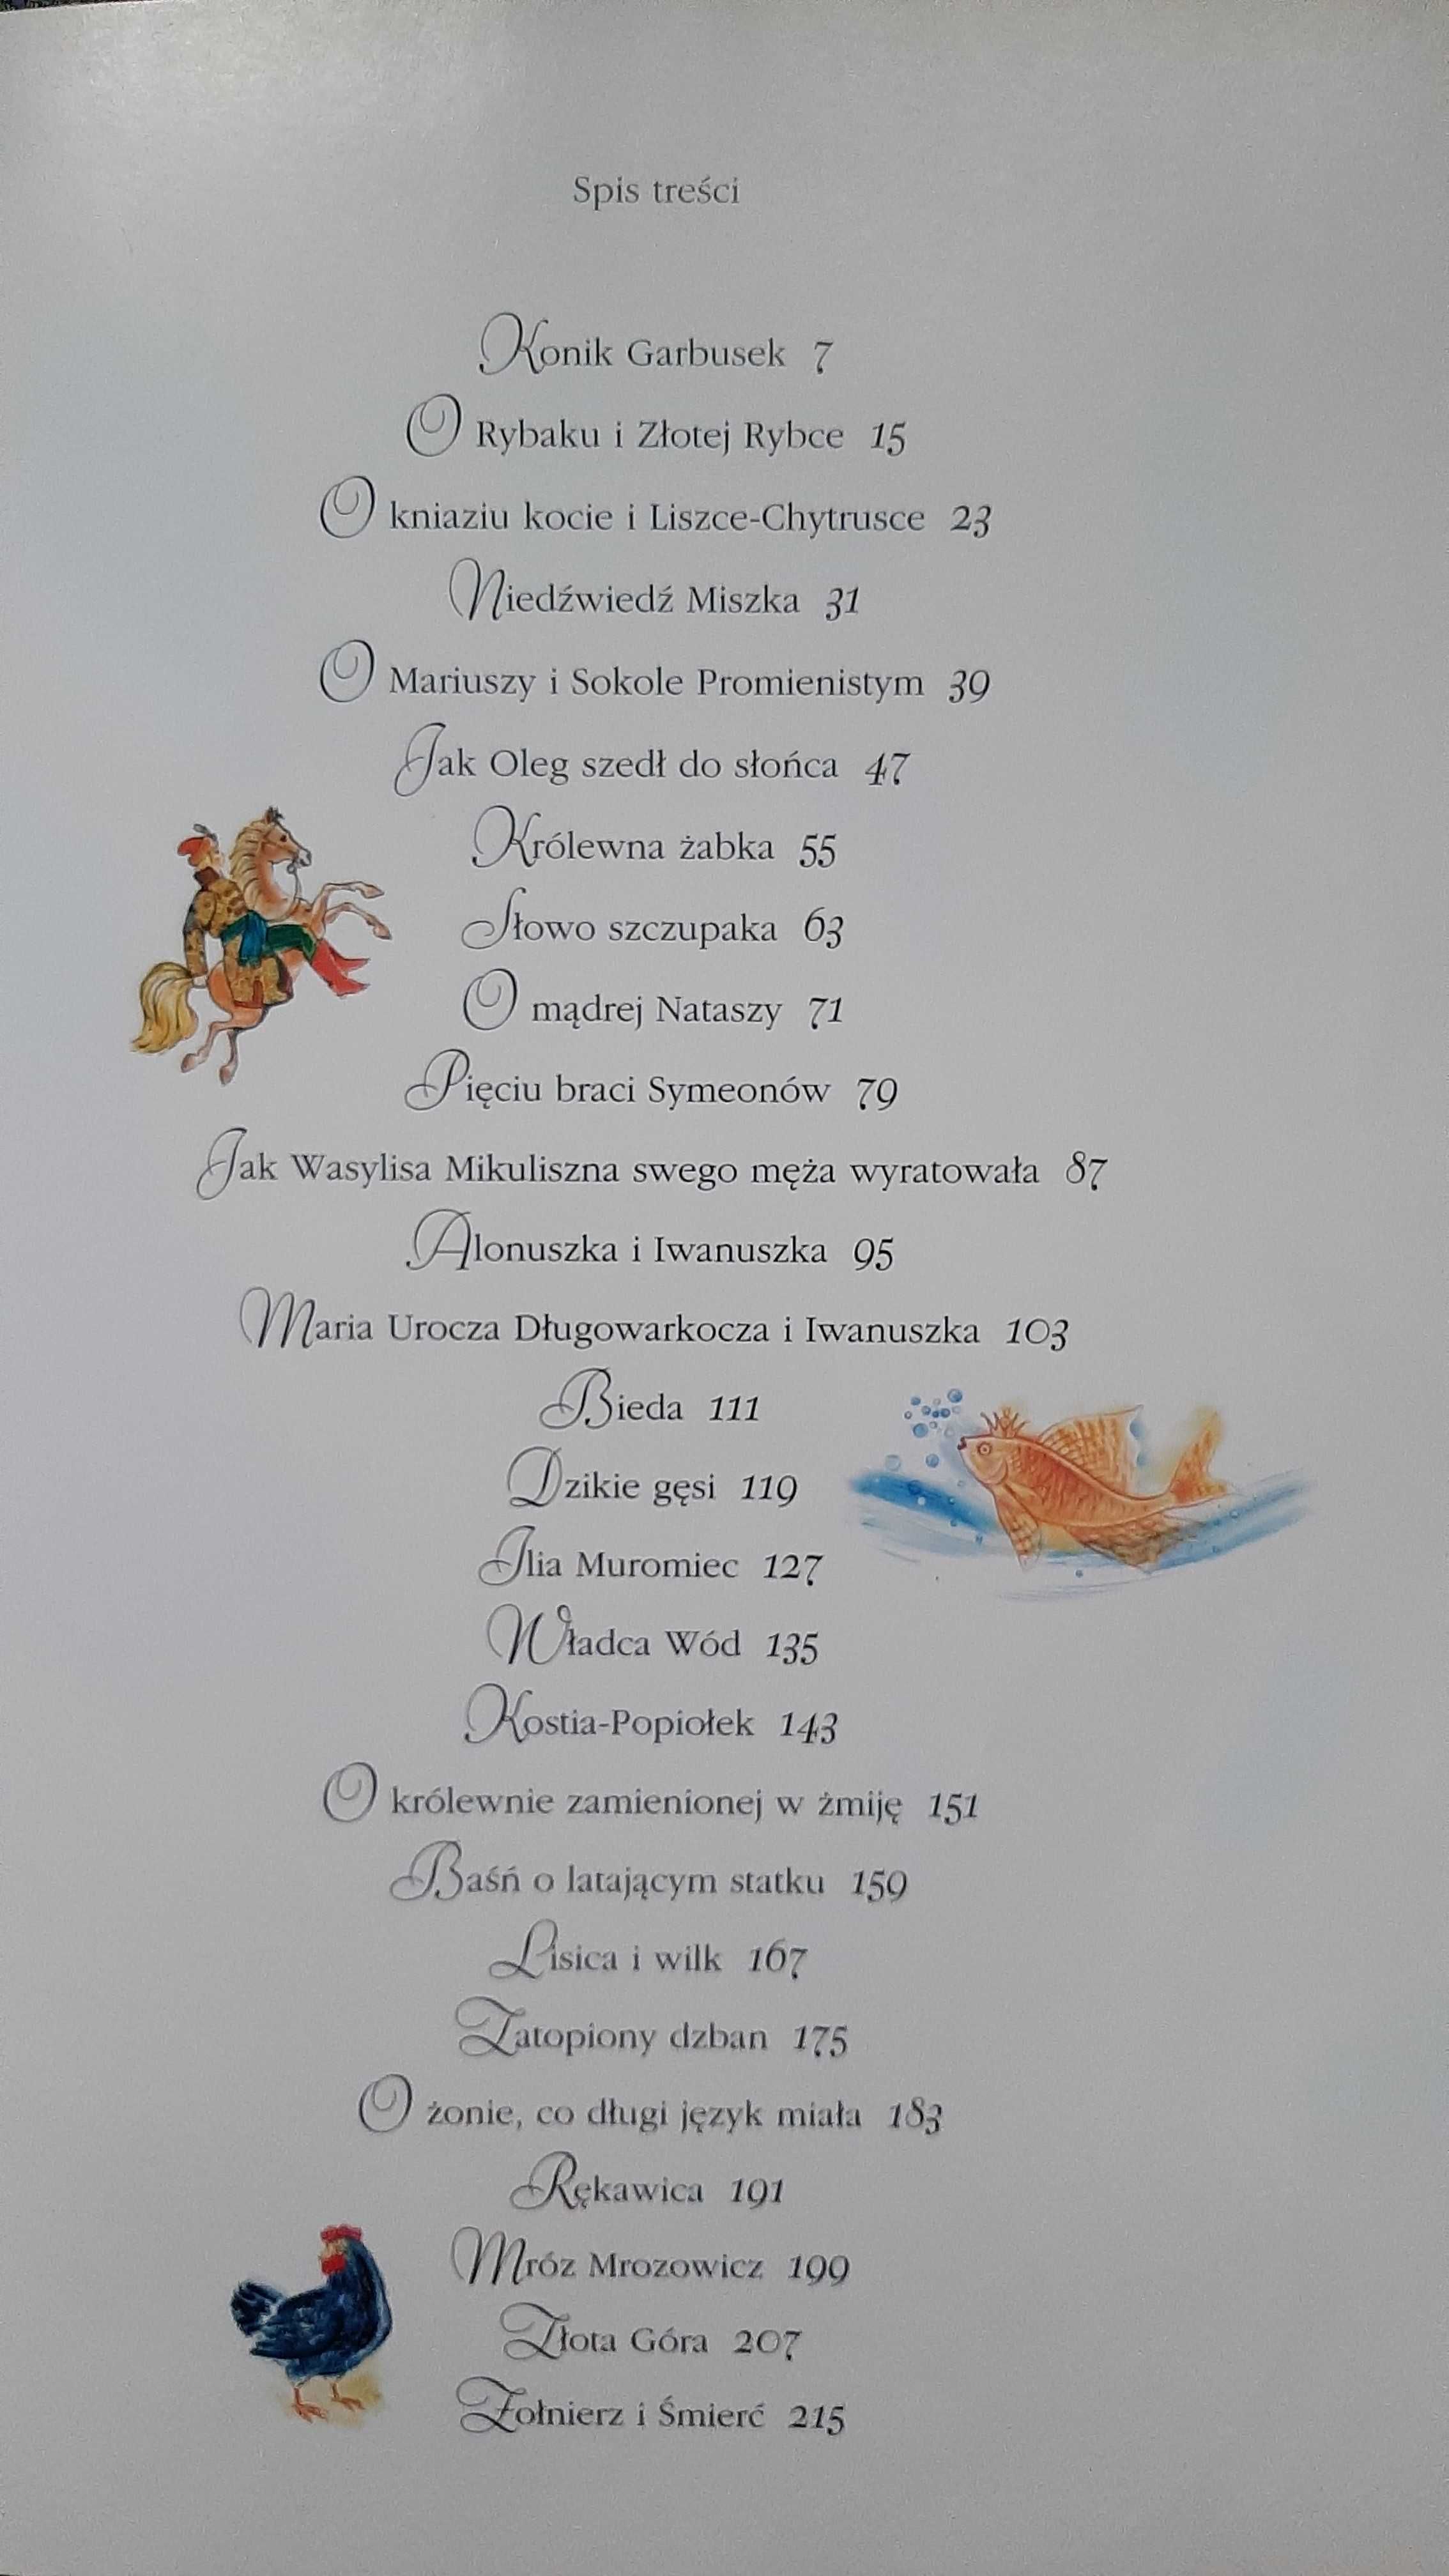 Spis treści
Konik Garbusek 7
O Rybaku i Złotej Rybce 15
O kniaziu kocie i Liszce-Chytrusce 23
Niedźwiedź Miszka 31
O Mariuszy i Sokole Promienistym 39
Jak Oleg szedł do słońca 47
Królewna żabka 55
Słowo szczupaka 63
O mądrej Nataszy 71
Pięciu braci Symeonów 79
Jak Wasylisa Mikuliszna swego męża wyratowała 87
Alonuszka i Iwanuszka 95
Maria Urocza Długowarkocza i Iwanuszka 103
Bieda 111
Dzikie gęsi 119
Ilia Muromiec 127
Władca Wód 135
Kostia-Popiołek 143
O królewnie zamienionej w żmiję 151
Baśń o latającym statku 159
Lisica i wilk 167
Zatopiony dzban 175
O żonie, co długi język miała 183
Rękawica 191
Mróz Mrozowicz 199
Złota Góra 207
Żołnierz i Śmierć 215